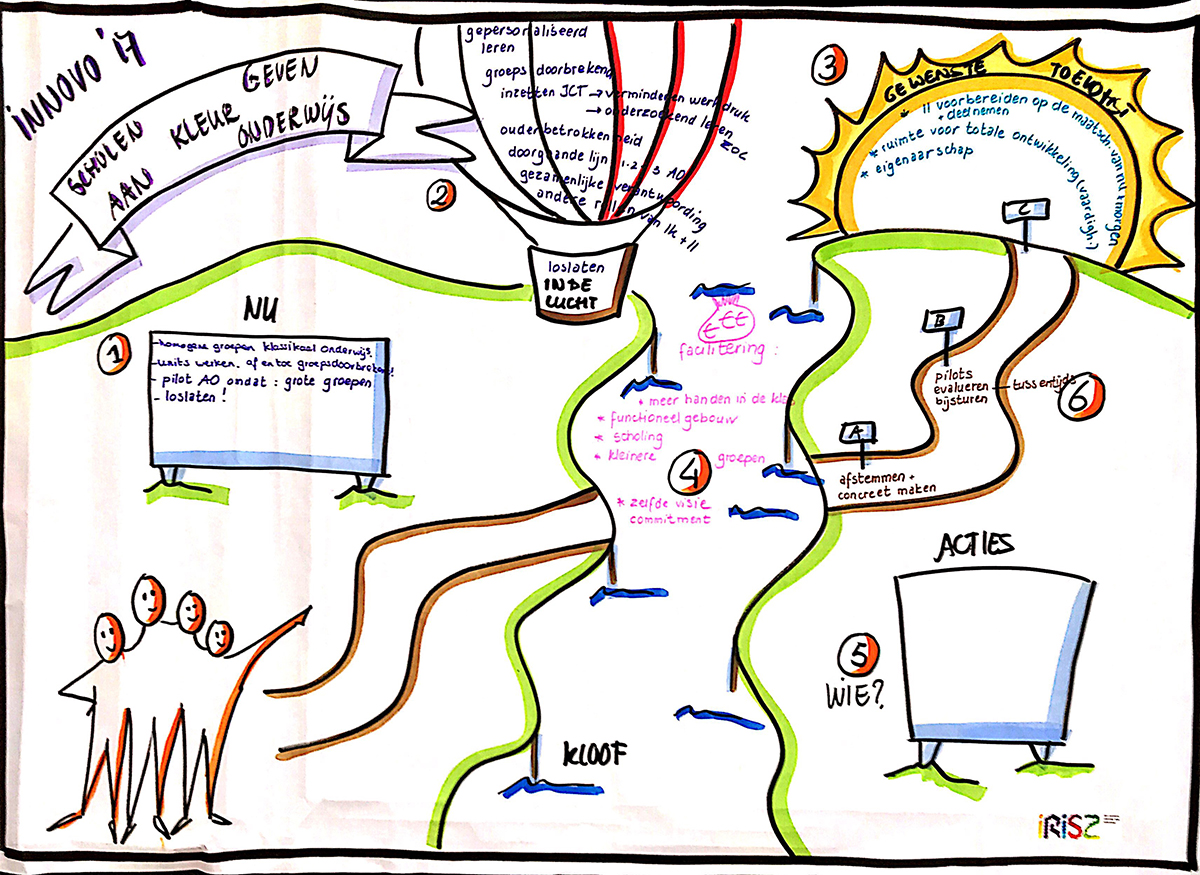 iNNOVO '17
SCHOLEN
GEVEN
AAN KLEUR
ONDERWIJS
2
gepersonaliseerd
leren
groeps doorbrekend
inzetten ICT → verminderen werkdruk
→ onderzoekend leren
zoc
ouderbetrokkenheid
doorgaande lijn 1-2-3 AO
gezamenlijke verantwoording
andere rollen van lk + ll
loslaten
IN DE
LUCHT
3
GEWENSTE TOEKOMST
* ll voorbereiden op de maatsch. van nu + morgen
+ deelnemen
* ruimte voor totale ontwikkeling (vaardigh.)
* eigenaarschap
NU
1
- homogene groepen klassikaal onderwijs.
- units werken. af en toe groepsdoorbreken!
- pilot AO omdat : grote groepen
- loslaten !
€€€
facilitering :
* meer handen in de klas
* functioneel gebouw
* scholing
* kleinere groepen
4
* zelfde visie
commitment
C
B
pilots
evalueren — tussentijds
bijsturen
6
A
afstemmen +
concreet maken
ACTIES
5
WIE?
KLOOF
iRiSZ